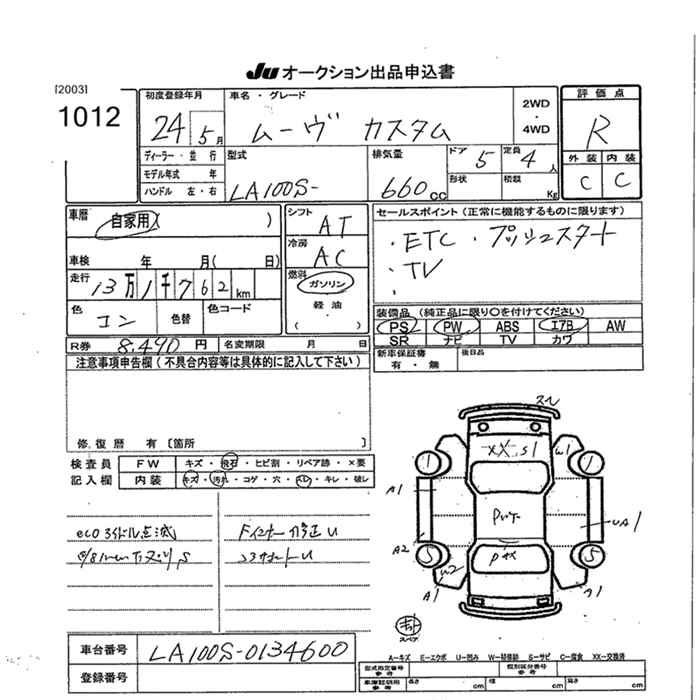 Ju オークション出品申込書
[2003]
1012
初度登録年月
24 5月
車名・グレード
ムーヴ カスタム
2WD
・
4WD
評価点
R
外装 内装
C C
ディーラー・並行
モデル年式 年
ハンドル 左・右
型式
LA100S-
排気量
660cc
ドア 5
定員 4人
形状
積載 Kg
車暦
自家用( )
車検 年 月( 日)
走行
13万1千762km
色
コン
色替
色コード
シフト
AT
冷房
AC
燃料
ガソリン
軽油
( )
セールスポイント(正常に機能するものに限ります)
・ETC ・プッシュスタート
・TV
・
装備品(純正品に限り○を付けてください)
PS PW ABS エアB AW
SR ナビ TV カワ
新車保証書
有・無
後日品
R券 8,490円
名変期限 月 日
注意事項申告欄(不具合内容等は具体的に記入して下さい)
修復歴 有〔箇所 〕
検査員
記入欄
FW キズ・飛石・ヒビ割・リペア跡・×要
内装 キズ・汚れ・コゲ・穴・スレ・キレ・破レ
ecoアイドル点滅
スレ
XX S1
W1
1
1
A1
UA1
A2
W2
5
5
A1
スペア
車台番号 LA100S-0134600
登録番号
A-キズ E-エクボ U-凹み W-補修跡 S-サビ C-腐食 XX-交換済
型式指定番号
参考
類別区分番号
参考
車庫証明用
参考
長さ cm
幅 cm
高さ cm